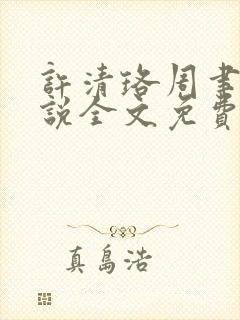 許清珞周聿
說全文免費
真島浩